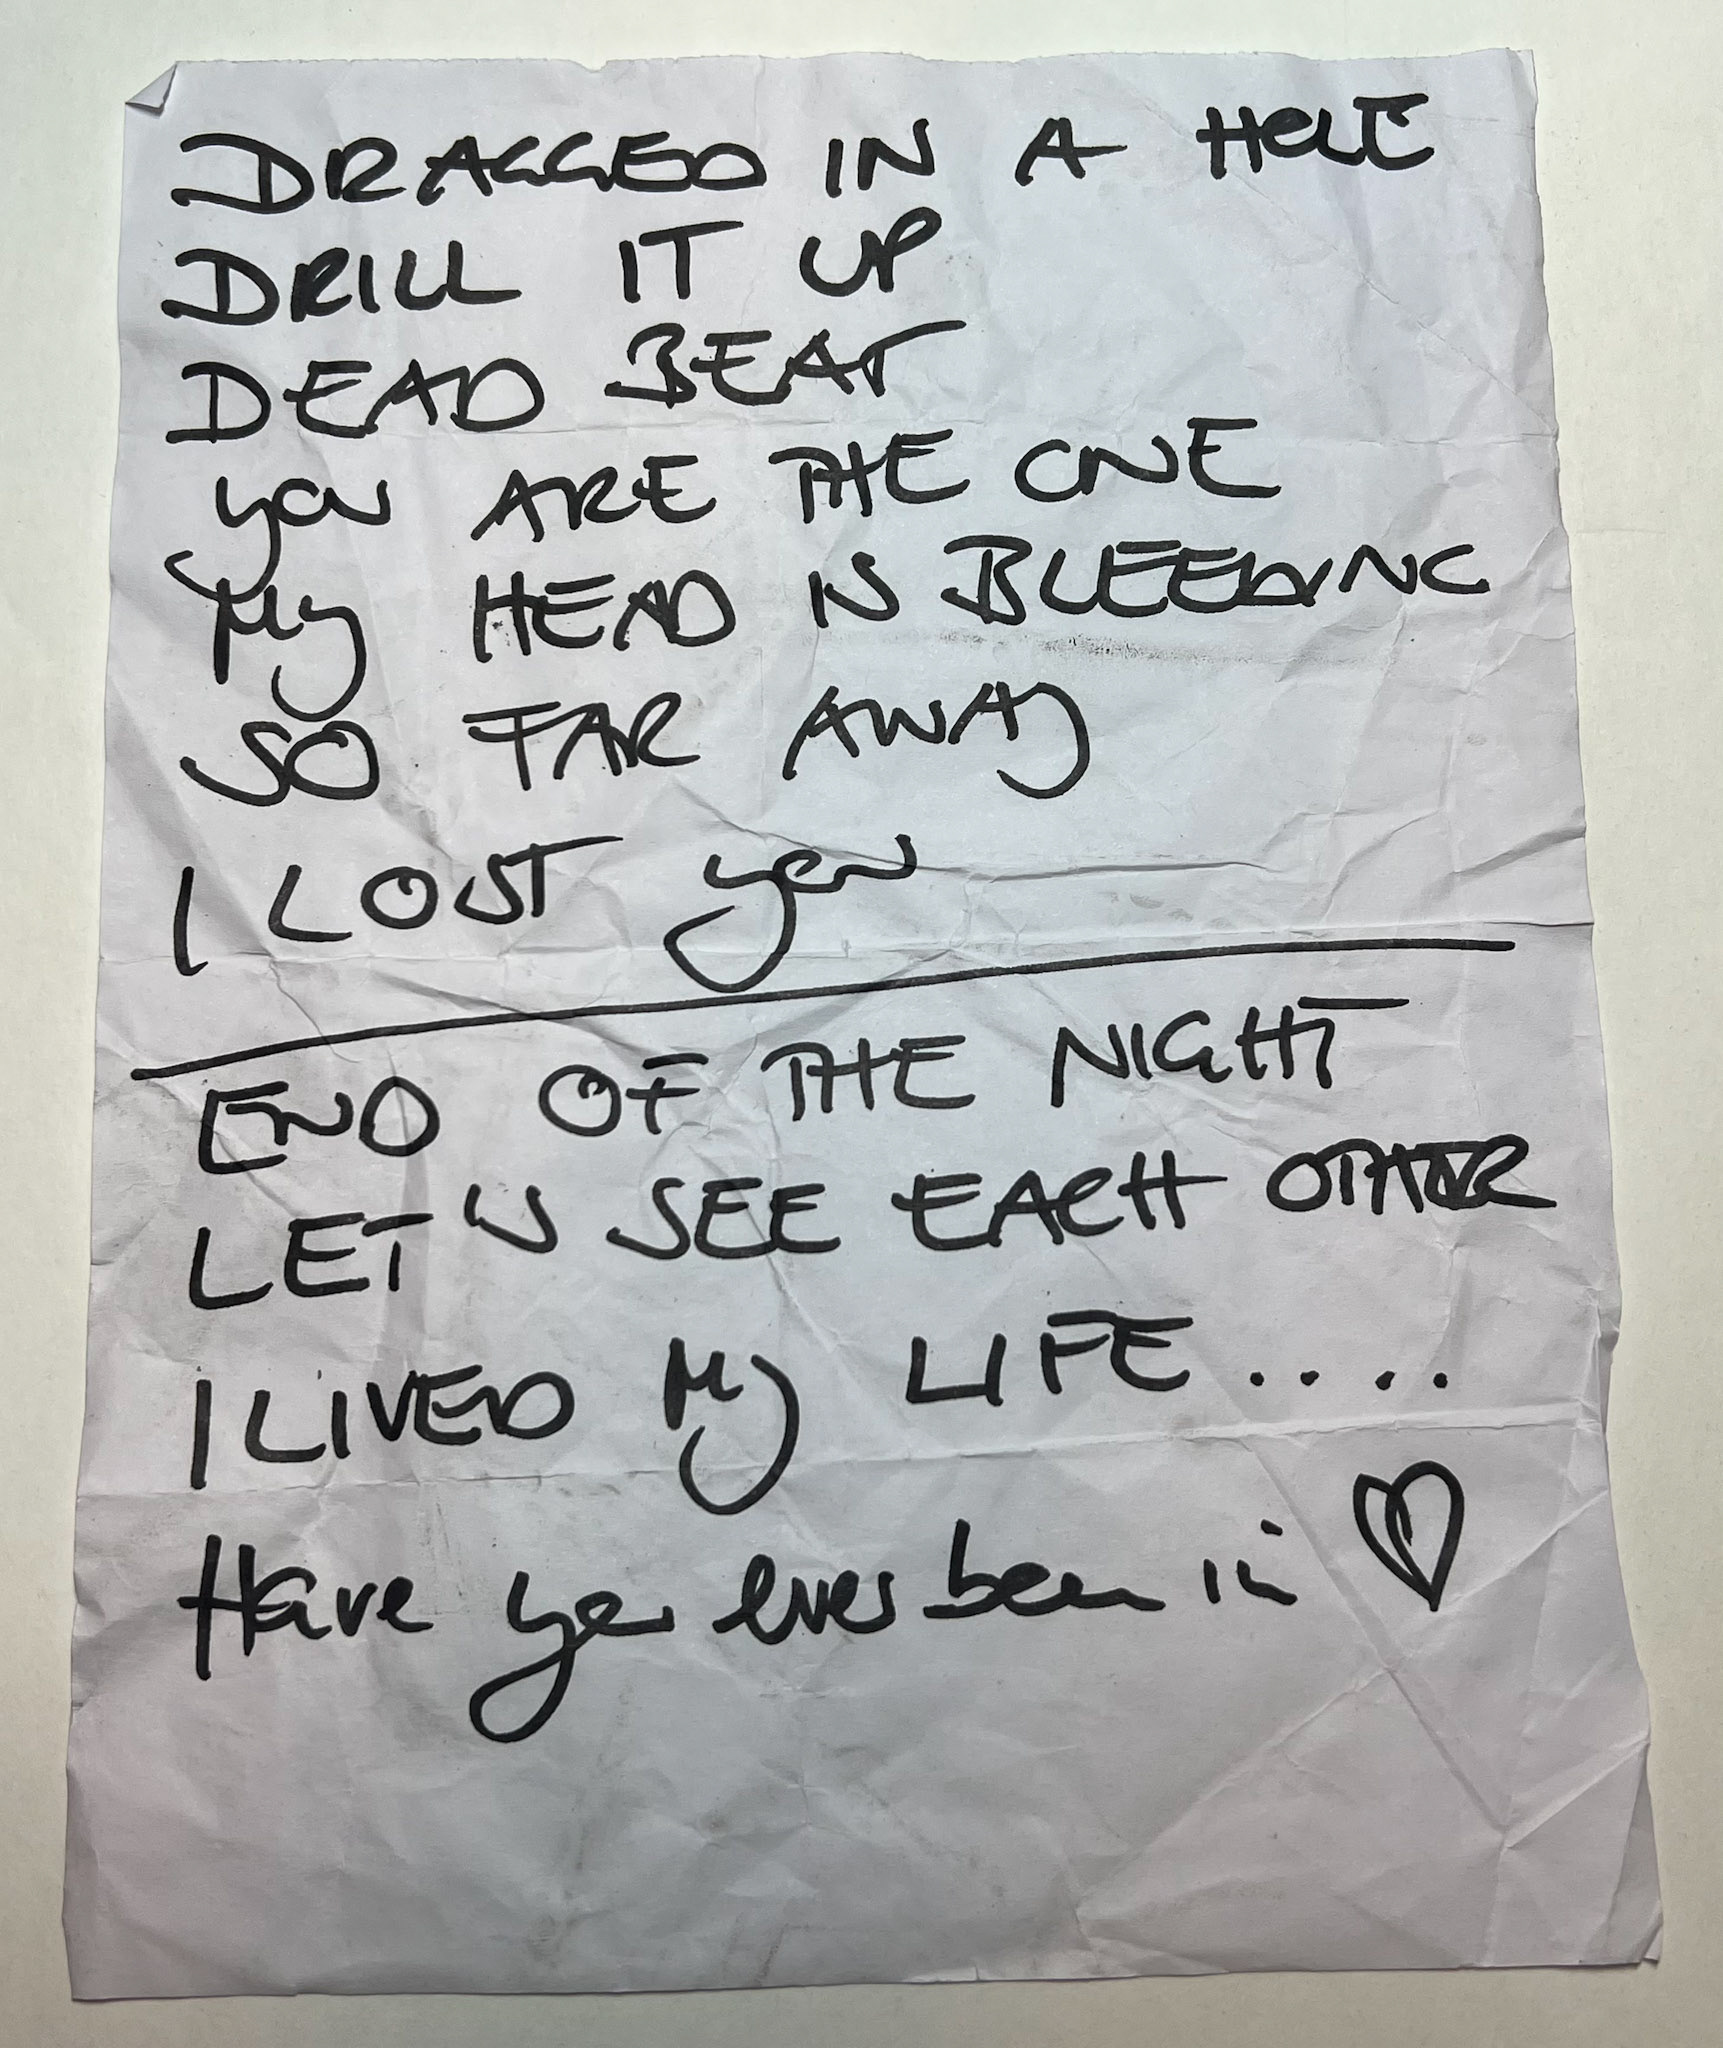 DRAGGED IN A HOLE
DRILL IT UP
DEAD BEAT
you ARE THE ONE
My HEAD IS BLEEDING
SO FAR AWAY
I LOST you
END OF THE NIGHT
LET'S SEE EACH OTHER
I LIVED My LIFE....
Have you ever been in ♡